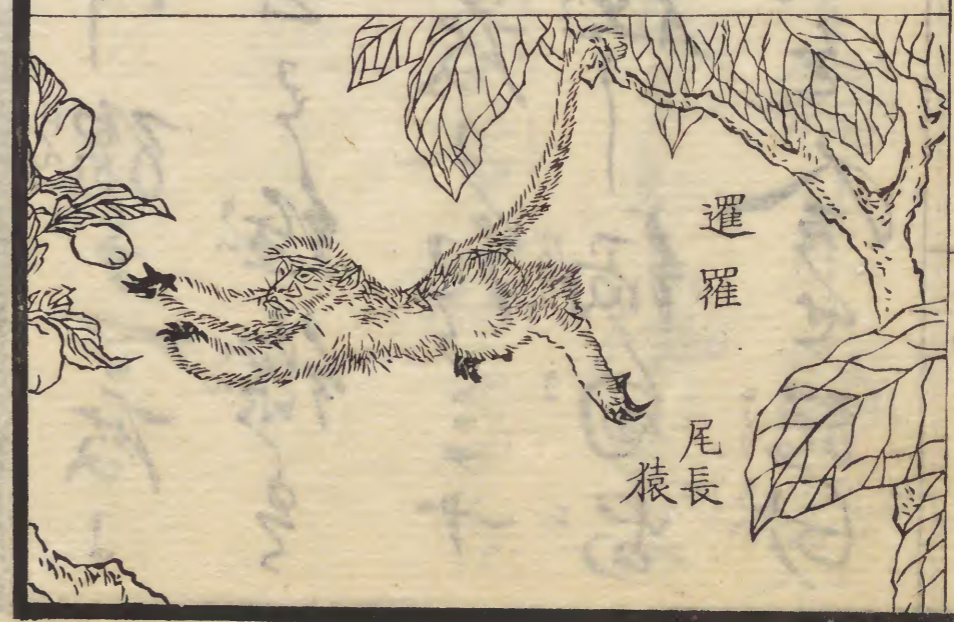 暹羅
尾長
猿